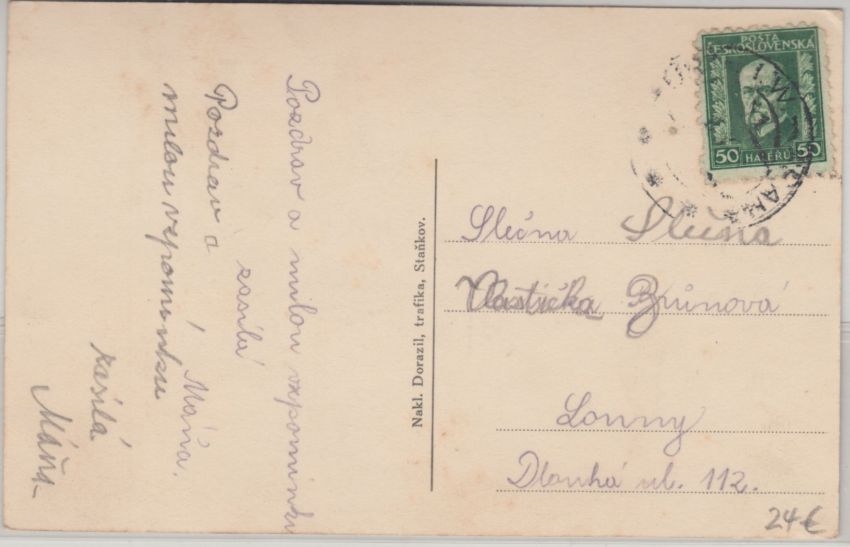 Pozdrav a milou vzpomínku
zasílá
Máňa.
Pozdrav a
milou vzpomínku
zasílá
Máňa
Nakl. Dorazil, trafika, Staňkov.
POŠTA
ČESKOSLOVENSKÁ
50 HALÉŘŮ 50
Slečna Slečna
Vlastička Brůnová
Louny
Dlouhá ul. 112.
24€